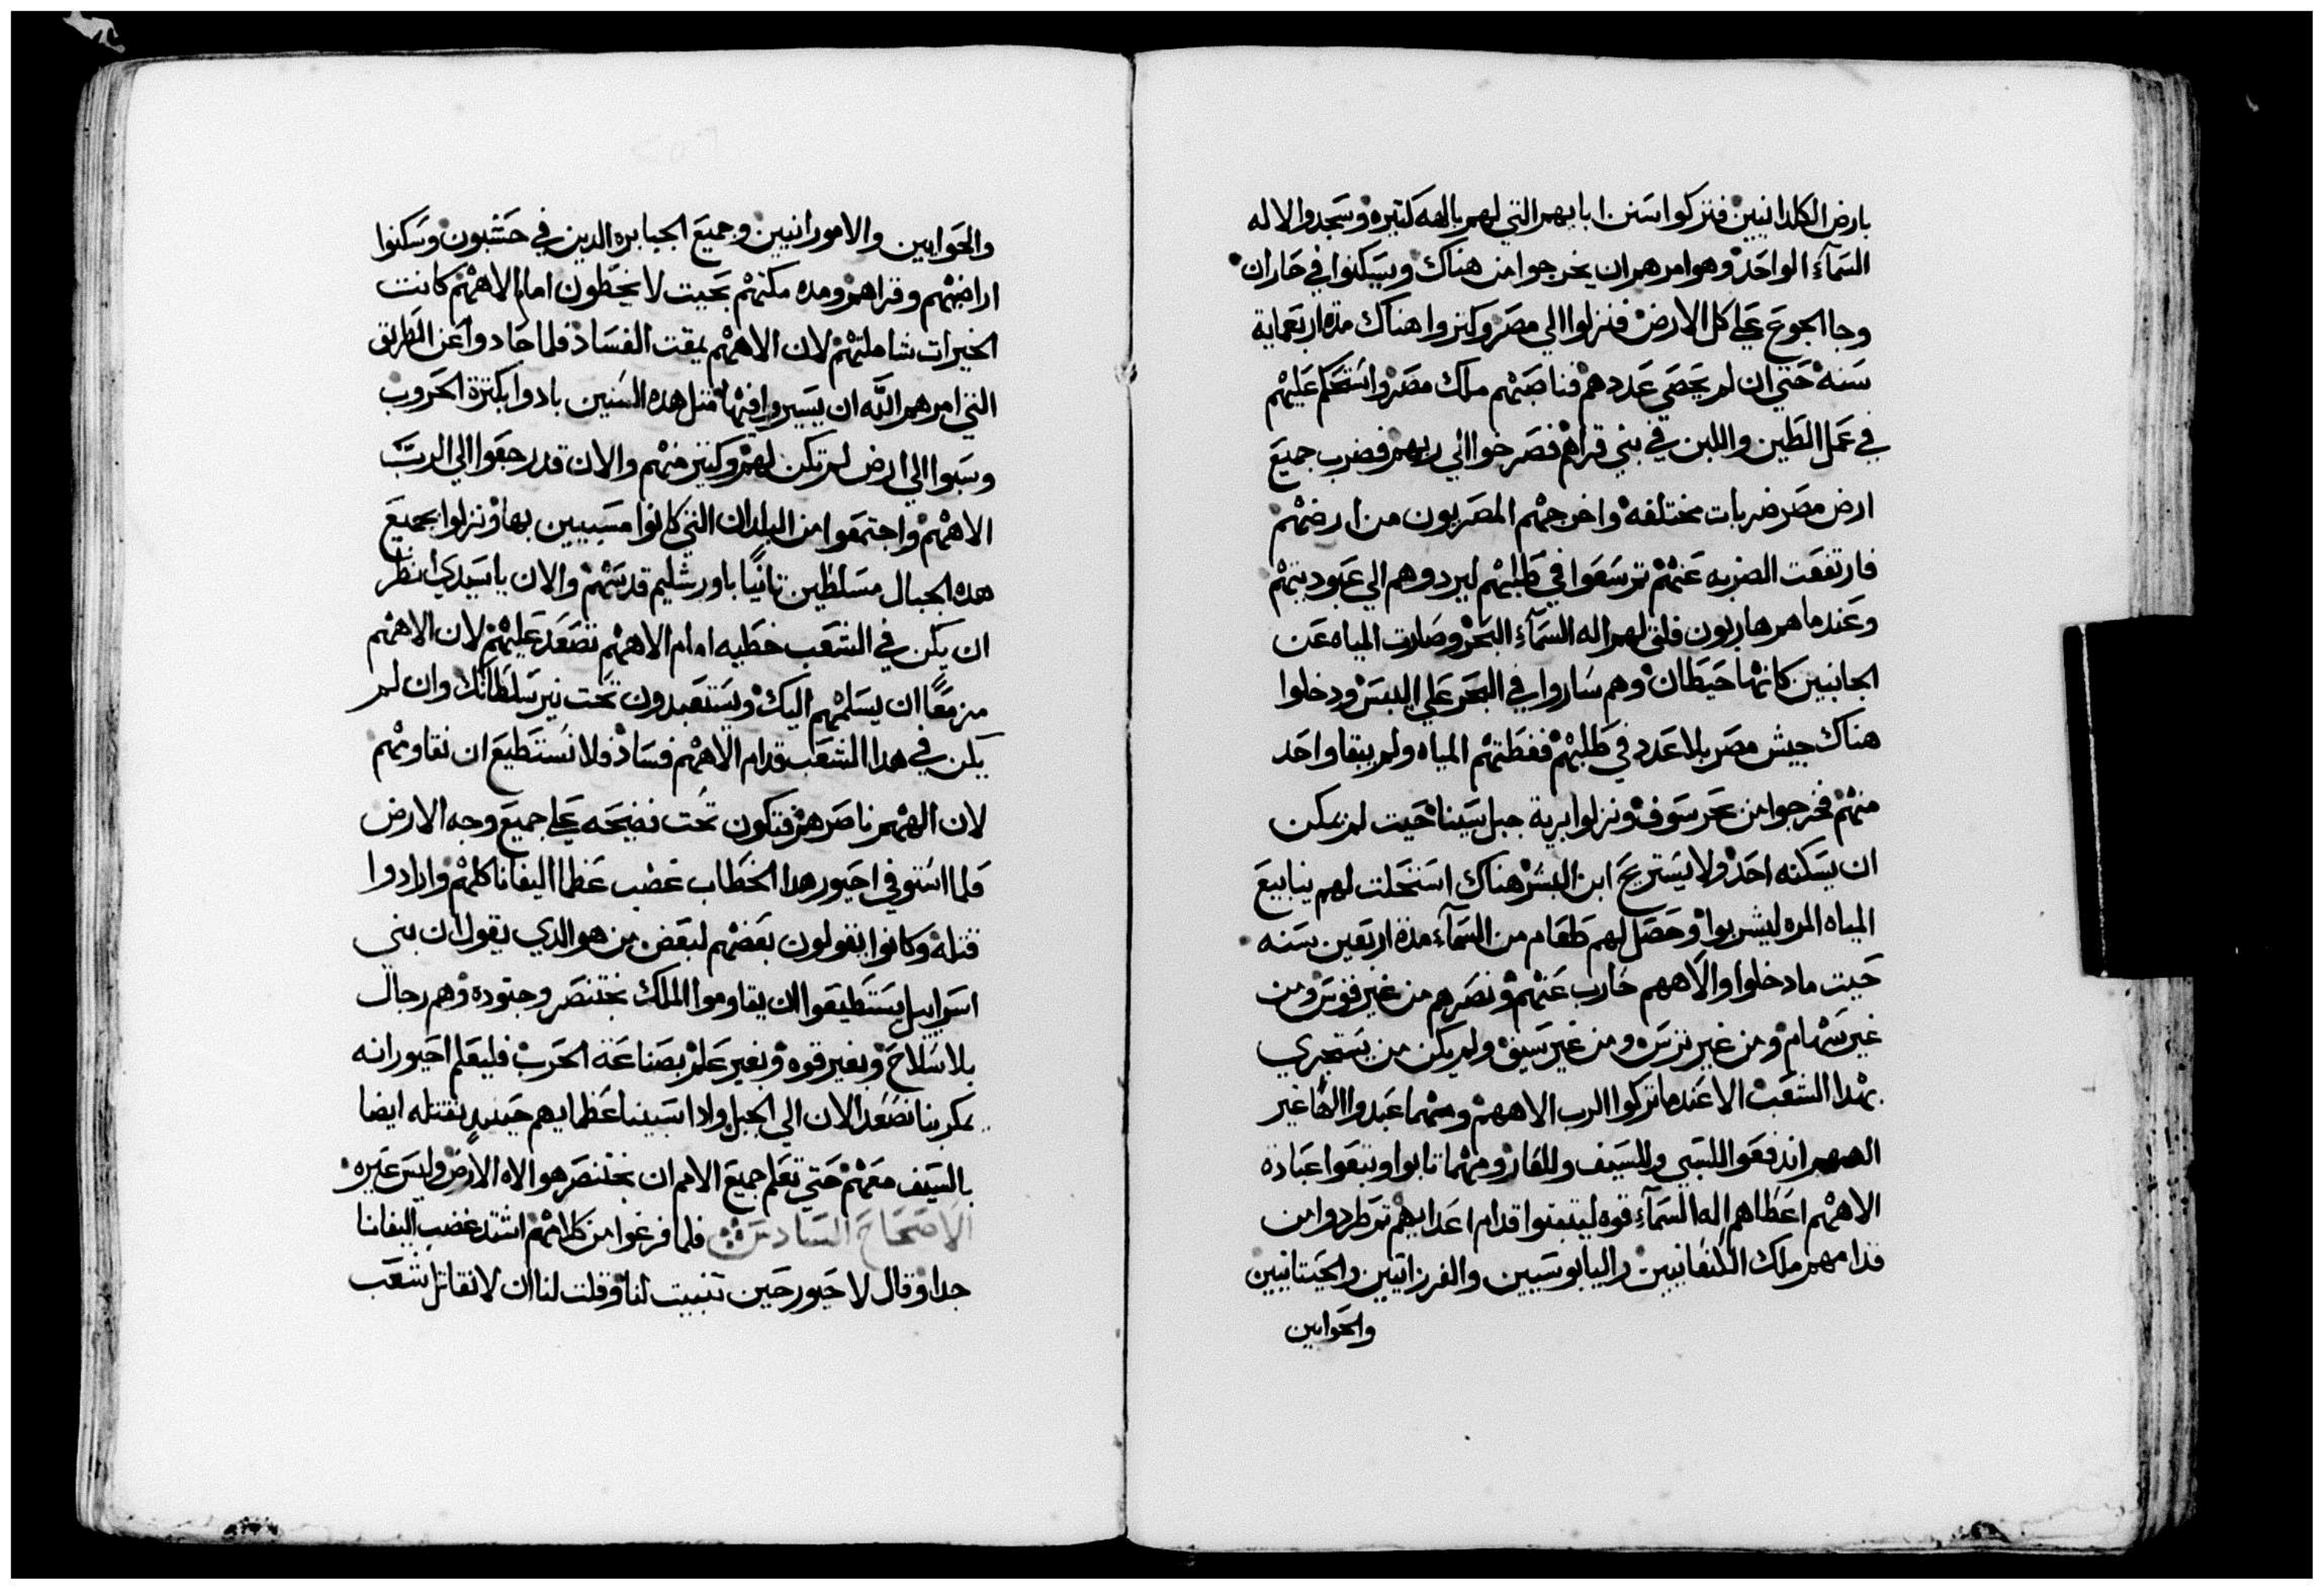 بارض الكلدانيين فتركوا سنن ابايهم التي لهم بالهه كتيره وسجدوا لاله
السمآء الواحد وهو امرهم ان يخرجوا من هناك ويسكنوا في حاران
وجا الجوع علي كل الارض فنزلوا الي مصر وكتروا هناك مدة اربعماية
سنه حتي ان لم يحصي عددهم فناصبهم ملك مصر واستحكم عليهم
في عمل الطين واللبن في بني قراهم فصرخوا الي ربهم فضرب جميع
ارض مصر ضربات مختلفه واخرجهم المصريون من ارضهم
فارتفعت الضربه عنهم تم سعوا في طلبهم ليردوهم الي عبوديتهم
وعندما هم هاربون فلق لهم اله السمآء البحر وصارت المياه عن
الجانبين كانها حيطان وهم ساروا في البحر علي اليبس ودخلوا
هناك جيش مصر بلا عدد في طلبهم فغطتهم المياه ولم يبقا واحد
منهم فخرجوا من بحر سوف ونزلوا برية جبل سينا حيت لم يمكن
ان يسكنه احد ولا يستريح ابن البشر هناك استحلت لهم ينابيع
المياه المره ليشربوا وحصل لهم طعام من السمآء مدة اربعين سنه
حيت ما دخلوا والاههم حارب عنهم ونصرهم من غير قوس ومن
غير سهام ومن غير ترس ومن غير سيف ولم يكن من يستجري
بهدا الشعب الا عندما تركوا الرب الاههم ومهما عبدوا الهًا غير
الههم اندفعوا للسبي وللسيف وللعار ومهما تابوا وتبعوا عباده
الاههم اعطاهم اله السمآء قوه ليتبتوا قدام اعدايهم تم طردوا من
قدامهم ملك الكنعانيين واليابوسيين والفرزانيين والحيتانيين
والحوايين
والحوايين والامورانيين وجميع الجبابره الدين في حشبون وسكنوا
اراضيهم وقراهم ومده مكتهم بحيت لا يخطون امام الاههم كانت
الخيرات شاملتهم لان الاههم يمقت الفساد فلما حادوا عن الطريق
التي امرهم الله ان يسيروا فيها متل هده السنين بادوا بكترة الحروب
وسبوا الي ارض لم تكن لهم وكتير منهم والان قد رجعوا الي الرب
الاههم واجتمعوا من البلدان التي كانوا مسبيين بها ونزلوا بجميع
هده الجبال مسلطين تانيًا باورشليم قدسهم والان يا سيدي انظر
ان يكن في الشعب خطيه امام الاههم نصعد عليهم لان الاههم
مزمعًا ان يسلمهم اليك ويستعبدون تحت نير سلطانك وان لم
يكن في هدا الشعب قدام الاههم فساد فلا نستطيع ان نقاومهم
لان الههم ناصرهم فنكون تحت فضيحه علي جميع وجه الارض
فلما استوفي احيور هدا الخطاب غضب عظما اليفانا كلهم وارادوا
قتله وكانوا يقولون بعضهم لبعض من هو الدي يقول ان بني
اسراييل يستطيعوا ان يقاوموا الملك بختنصر وجنوده وهم رجال
بلا سلاح وبغير قوه وبغير علم بصناعة الحرب فليعلم احيور انه
يمكر بنا نصعد الان الي الجبل وادا سبينا عظمايهم حينيدٍ نقتله ايضا
بالسيف معهم حتي تعلم جميع الامم ان بختنصر هو الاه الارض وليس غيره
الاصحاح السادس فلما فرغوا من كلامهم اشتد غضب اليفانا
جدا وقال لاحيور حين تنبيت لنا وقلت لنا ان لا نقاتل شعب